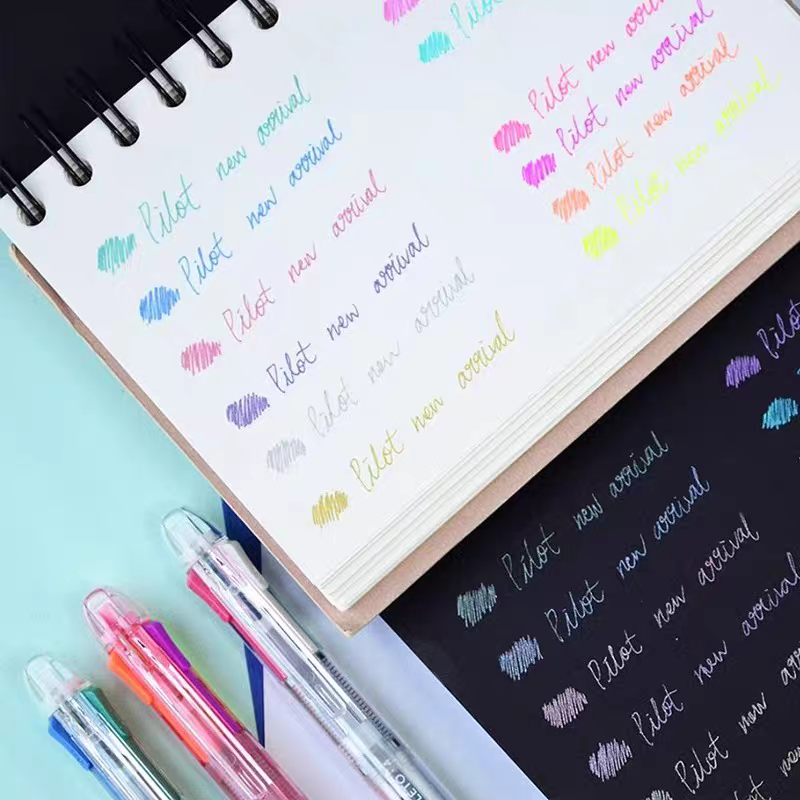 Pilot new arrival
Pilot new arrival
Pilot new arrival
Pilot new arrival
Pilot new arrival
Pilot new arrival
Pilot
Pilot new
Pilot new arrival
Pilot new arrival
Pilot new arrival
Pilot new arrival
Pilot
Pilot new arrival
Pilot new arrival
Pilot new arrival
Pilot new arrival
Pilot new